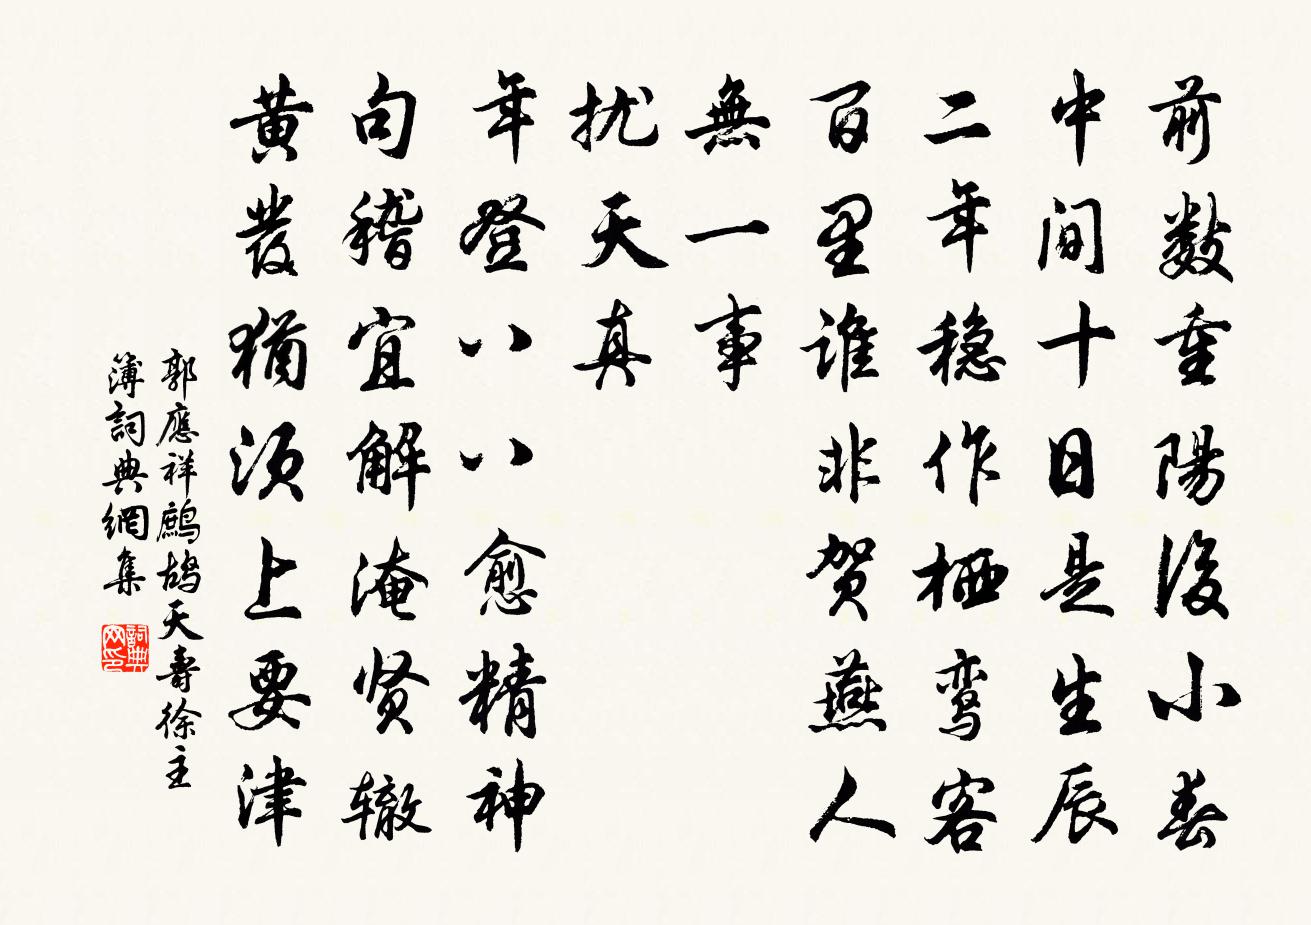 前數重陽後小春
中間十日是生辰
二年穏作栖鸾客
百里谁非贺燕人
無一事
扰天真
年登八八愈精神
句稽宜解淹贤辙
黄發猶须上要津
郭應祥鷓鴣天壽徐主
簿詞典網集
詞典网印